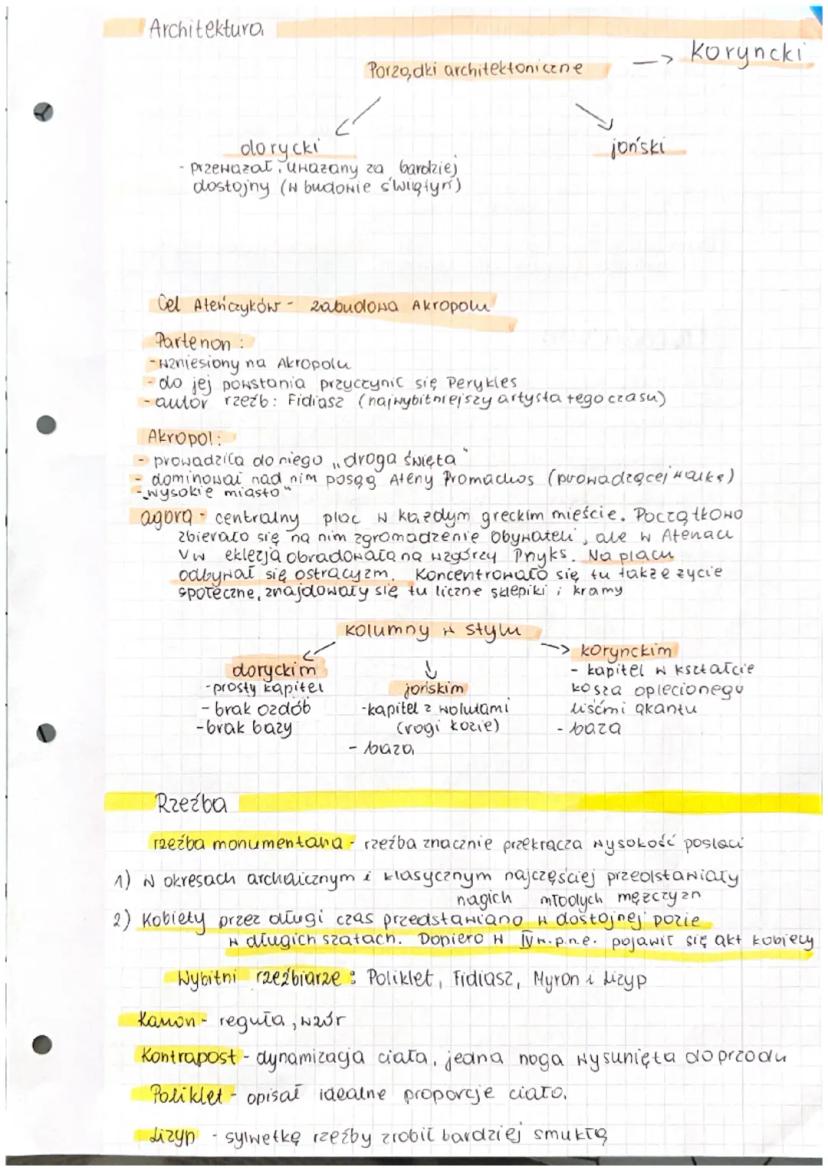 Architektura
Porządki architektoniczne → Koryncki
dorycki
joński
- przeważał, uważany za bardziej
dostojny (w budowie świątyń)
Cel Ateńczyków - zabudowa Akropolu
Partenon :
- wzniesiony na Akropolu
- do jej powstania przyczynił się Perykles
- autor rzeźb: Fidiasz (najwybitniejszy artysta tego czasu)
Akropol:
- prowadziła do niego „droga święta"
- dominował nad nim posąg Ateny Promachos (prowadzącej walkę)
- „wysokie miasto"
agora - centralny plac w każdym greckim mieście. Początkowo
zbierało się na nim zgromadzenie obywateli, ale w Atenach
V w eklezja obradowała na wzgórzy Pnyks. Na placu
odbywał się ostracyzm. Koncentrowało się tu także życie
społeczne, znajdowały się tu liczne sklepiki i kramy
kolumny w stylu
doryckim
- prosty kapitel
- brak ozdób
- brak bazy
jońskim
- kapitel z wolutami
(rogi kozie)
- baza
→ korynckim
- kapitel w kształcie
kosza oplecionego
liśćmi akantu
- baza
Rzeźba
rzeźba monumentalna - rzeźba znacznie przekracza wysokość postaci
1) w okresach archaicznym i klasycznym najczęściej przedstawiały
nagich młodych mężczyzn
2) Kobiety przez długi czas przedstawiano w dostojnej pozie
w długich szatach. Dopiero w IV w. p.n.e. pojawił się akt kobiecy
Wybitni rzeźbiarze : Poliklet, Fidiasz, Myron i Lizyp
Kanon - reguła, wzór
Kontrapost - dynamizacja ciała, jedna noga wysunięta do przodu
Poliklet - opisał idealne proporcje ciała.
Lizyp - sylwetkę rzeźby zrobił bardziej smukłą